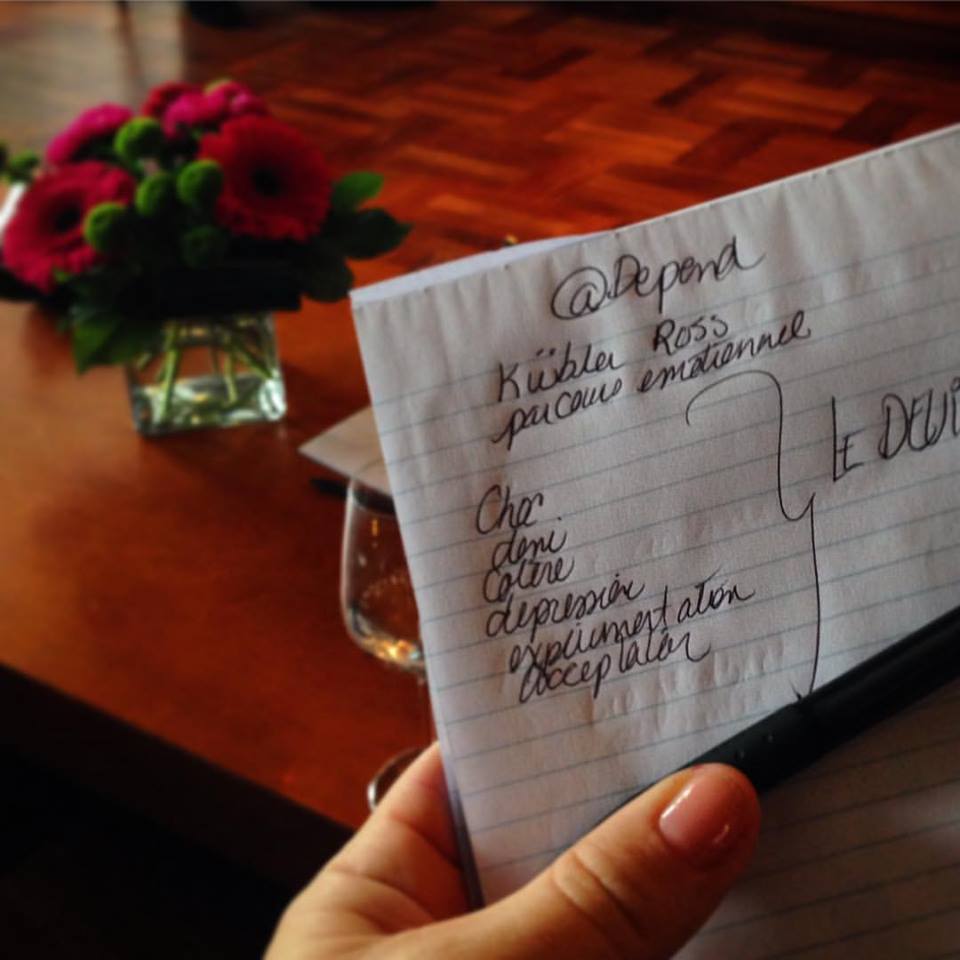 @Depend
Kübler Ross
parcours emotionnel
LE DEUI
Choc
deni
Colère
depression
expérimentation
acceptation